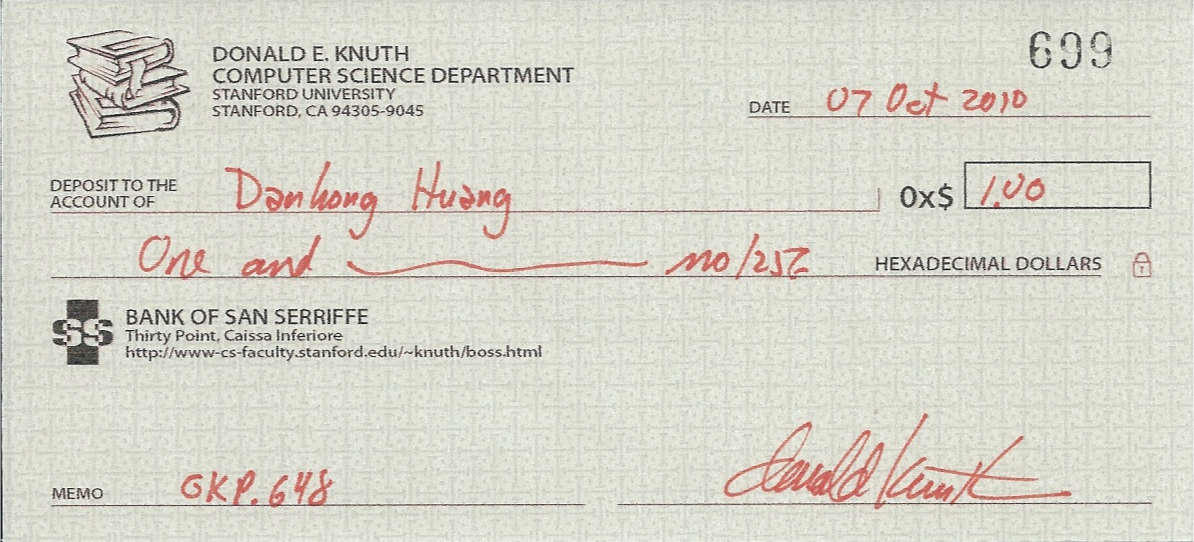 DONALD E. KNUTH
COMPUTER SCIENCE DEPARTMENT
STANFORD UNIVERSITY
STANFORD, CA 94305-9045
699
DATE 07 Oct 2010
DEPOSIT TO THE
ACCOUNT OF Dankong Huang 0x$ 1.00
One and no/256 HEXADECIMAL DOLLARS
SS
BANK OF SAN SERRIFFE
Thirty Point, Caissa Inferiore
http://www-cs-faculty.stanford.edu/~knuth/boss.html
MEMO GKP.648
Donald Knuth